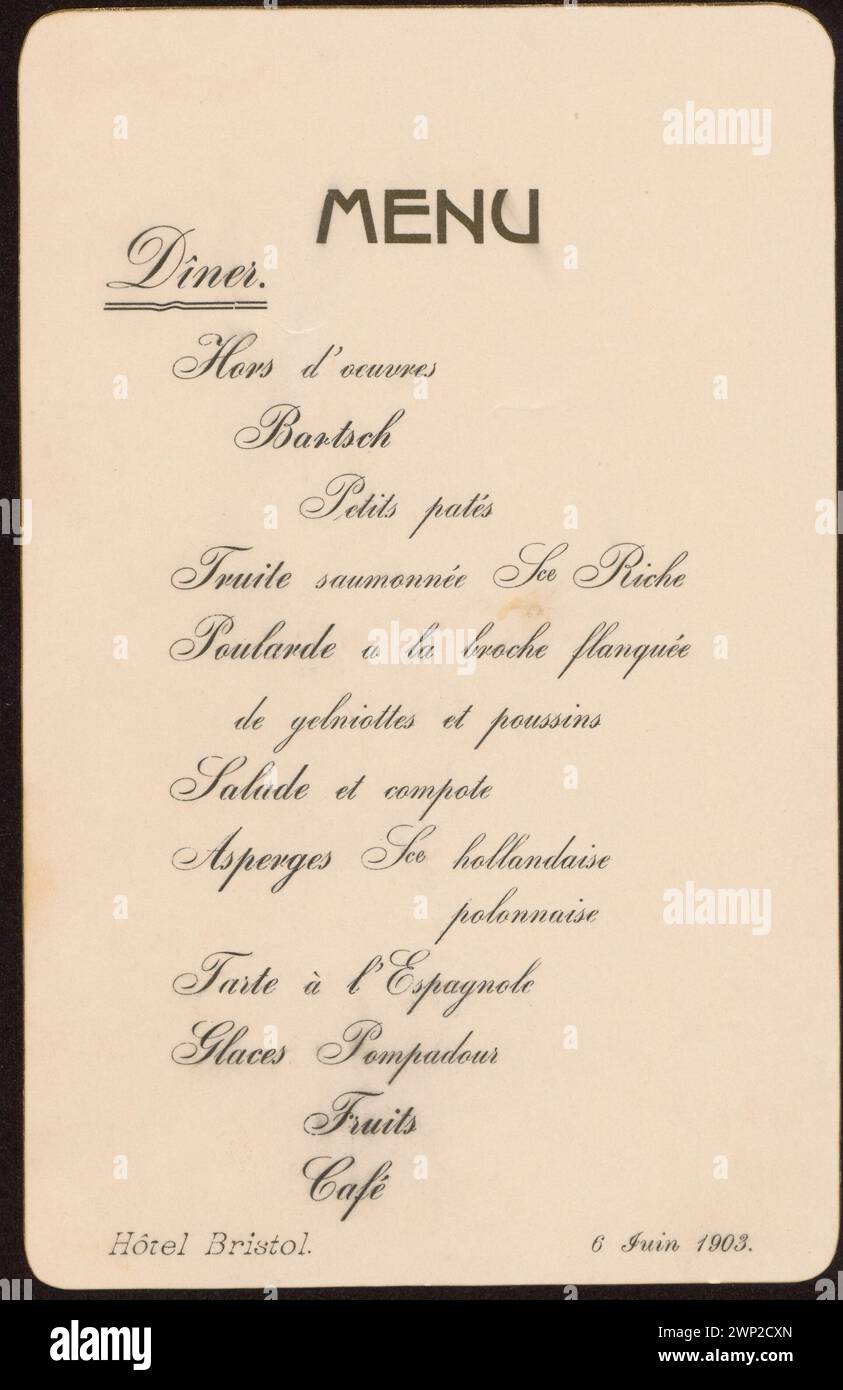 MENU
Dîner.
Hors d'oeuvres
Bartsch
Petits patés
Truite saumonnée Sce Riche
Poularde a la broche flanquée
de gelniottes et poussins
Salade et compote
Asperges Sce hollandaise
polonnaise
Tarte à l'Espagnole
Glaces Pompadour
Fruits
Café
Hôtel Bristol.
6 Juin 1903.
alamy
alamy
alamy
alamy
Image ID: 2WP2CXN
www.alamy.com